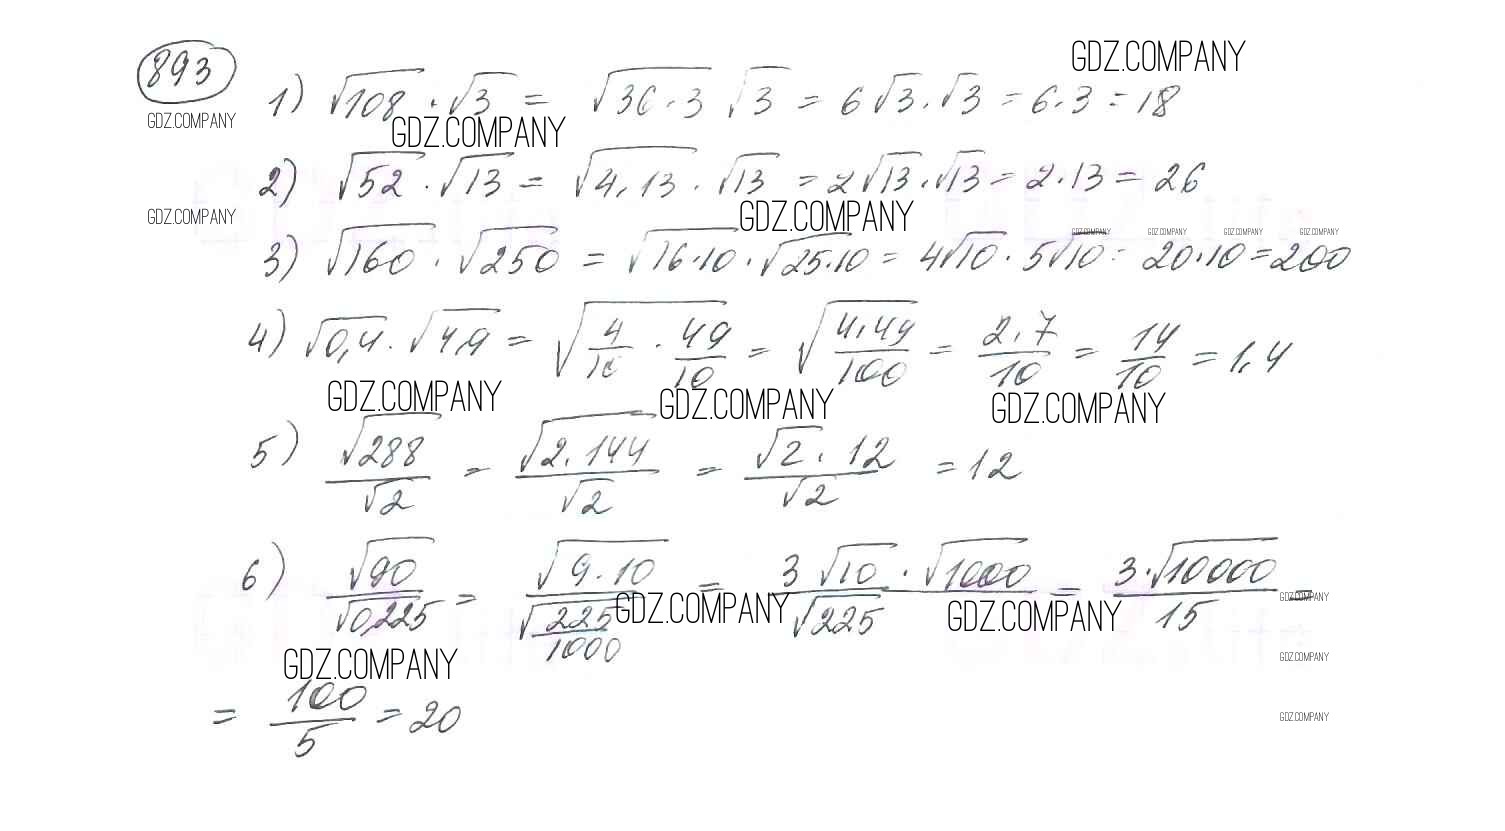 893
GDZ.COMPANY
GDZ.COMPANY
1) √108 · √3 = √36·3 √3 = 6√3·√3 = 6·3 = 18
GDZ.COMPANY
GDZ.COMPANY
2) √52 · √13 = √4·13 · √13 = 2√13·√13 = 2·13 = 26
GDZ.COMPANY
GDZ.COMPANY
GDZ.COMPANY GDZ.COMPANY GDZ.COMPANY GDZ.COMPANY
3) √160 · √250 = √16·10 · √25·10 = 4√10 · 5√10 = 20·10 = 200
4) √0,4 · √4,9 = √(4/10 · 49/10) = √(4·49/100) = 2·7/10 = 14/10 = 1,4
GDZ.COMPANY GDZ.COMPANY GDZ.COMPANY
5) √288/√2 = √2·144/√2 = √2·12/√2 = 12
6) √90/√0,225 = √9·10/√(225/1000) = 3√10·√1000/√225 = 3·√10000/15 =
GDZ.COMPANY GDZ.COMPANY GDZ.COMPANY
GDZ.COMPANY GDZ.COMPANY
= 100/5 = 20
GDZ.COMPANY